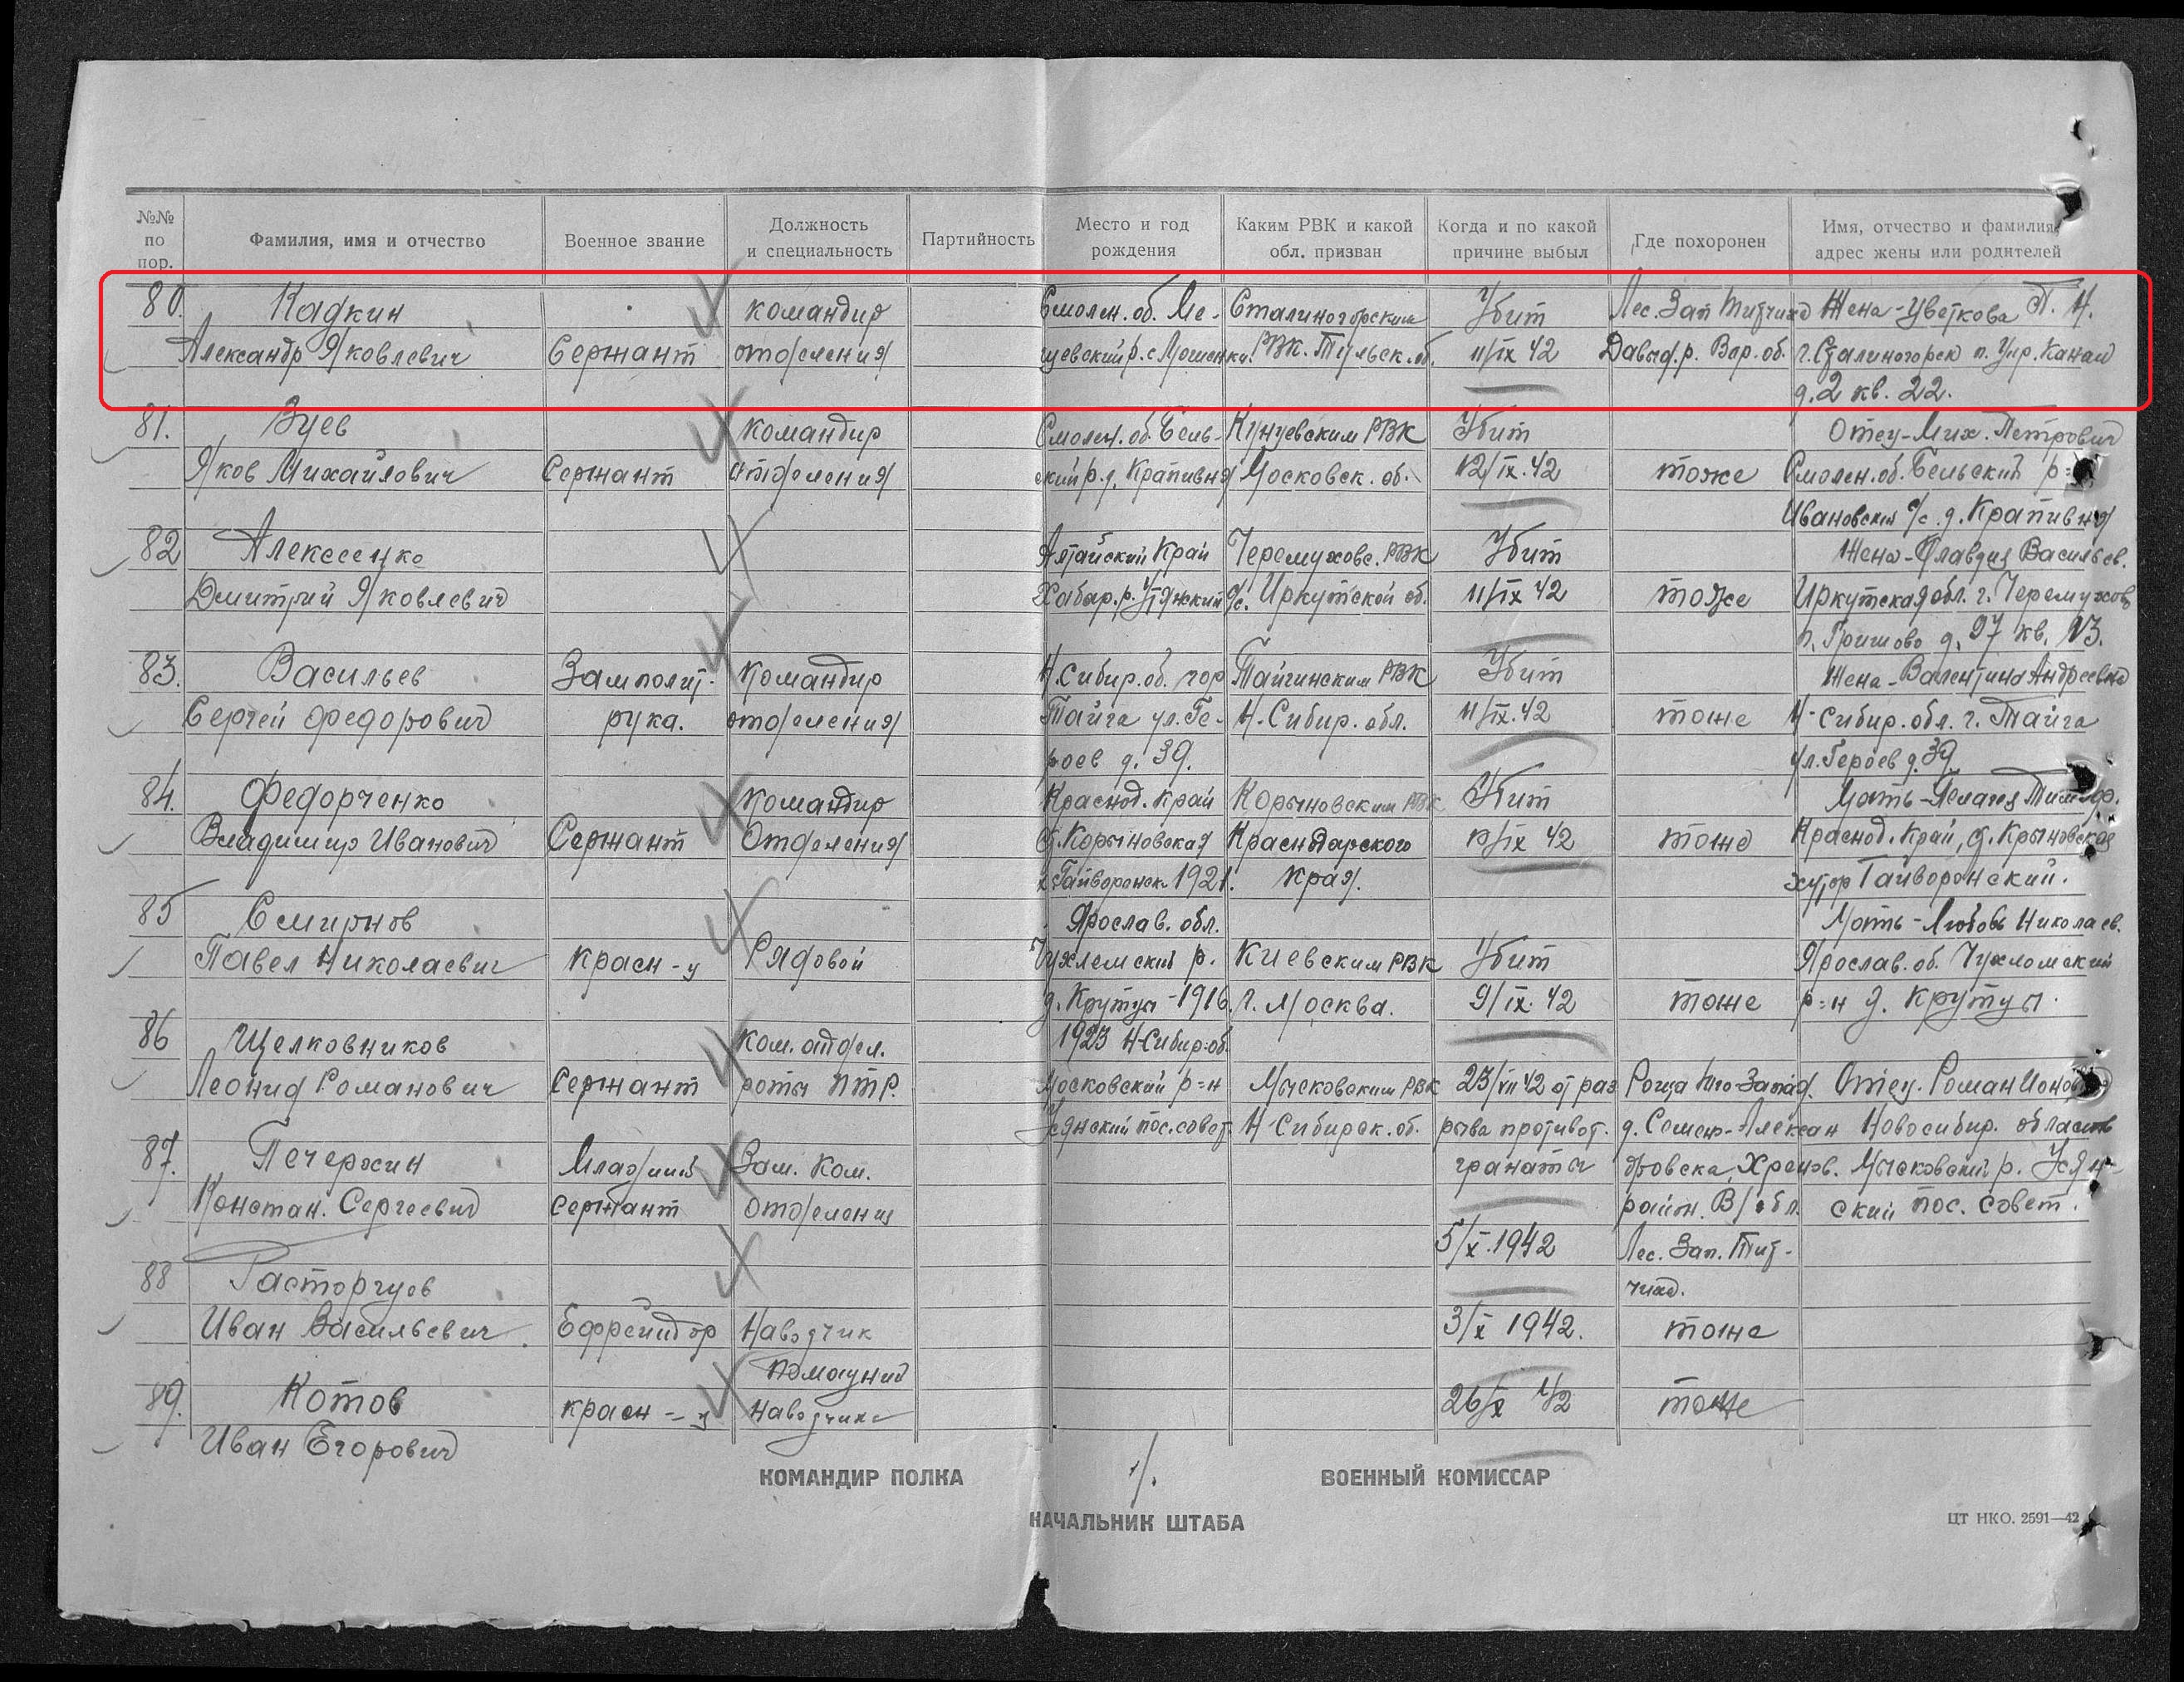 №№ по пор.
Фамилия, имя и отчество
Военное звание
Должность и специальность
Партийность
Место и год рождения
Каким РВК и какой обл. призван
Когда и по какой причине выбыл
Где похоронен
Имя, отчество и фамилия, адрес жены или родителей
80. Кадкин командир Смолен. об. Ме- Сталиногорским Убит Лес. Зап Титчиха Жена-Цветкова П. Н.
Александр Яковлевич Сержант отделения щевский р. с. РВК. Тульск. об. 11/IX 42 Давыд. р. Вор. об. г. Сталиногорск п. Упр. Канал
д. 2 кв. 22.
81. Зуев командир Смолен. об. Бель- Кунцевским РВК Убит Отец-Мих. Петрович
Яков Михайлович Сержант отделения ский р. д. Крапивня Московск. об. 12/IX. 42 тоже Смолен. об. Бельский р-
Ивановский с/с. д. Крапивня
82 Алексеенко Алтайский Край Черемховс. РВК Убит Жена-Клавдия Васильев.
Дмитрий Яковлевич Хабар. р. с/с. Иркутской об. 11/IX 42 тоже Иркутская обл. г. Черемхово
п. Гришово д. 27 кв. 13.
83. Васильев Замполит- командир Н. Сибир. об. гор Тайгинским РВК Убит Жена-Валентина Андреевна
Сергей Федорович рука. отделения Тайга ул. Ге- Н-Сибир. обл. 11/IX. 42 тоже Н-Сибир. обл. г. Тайга
роев д. 39. ул. Героев д. 39
84. Федорченко командир Краснод. край РВК Убит Мать-Пелагея
Владимир Иванович Сержант Отделения Краснодарского 10/IX 42 тоже Краснод. край,
1921. края. хутор Гайворонский.
85 Смирнов Ярослав. обл. Мать-Любовь Николаев.
Павел Николаевич красн-ц Рядовой Чухлемский р. Киевским РВК Убит Ярослав. об. Чухломский
д. Крутцы-1916. г. Москва. 9/IX. 42 тоже р-н д. Крутцы.
86 Щелковников Ком. отдел. 1923 Н-Сибир-об.
Леонид Романович Сержант роты ПТР. р-н Мысковским РВК 25/VII 42 от раз Роща Юго-Запад. Отец. Роман
Усянский пос. совет Н-Сибирск. об. рыва противот. д. Семено-Алексан Новосибир. область
87. Печерхин Младший Зам. Ком. гранаты дровска, Хренов. Мысковский р. Усян-
Констан. Сергеевич сержант отделения район. В/обл. ский пос. совет.
5/X. 1942 Лес. Зап. Тит-
88 Расторгуев чиха.
Иван Васильевич. Ефрейтор Наводчик 3/X 1942. тоже
Помощник
89. Котов красн-ц наводчика 26/X 42 тоже
Иван Егорович
КОМАНДИР ПОЛКА ВОЕННЫЙ КОМИССАР
НАЧАЛЬНИК ШТАБА
ЦТ НКО. 2591—42